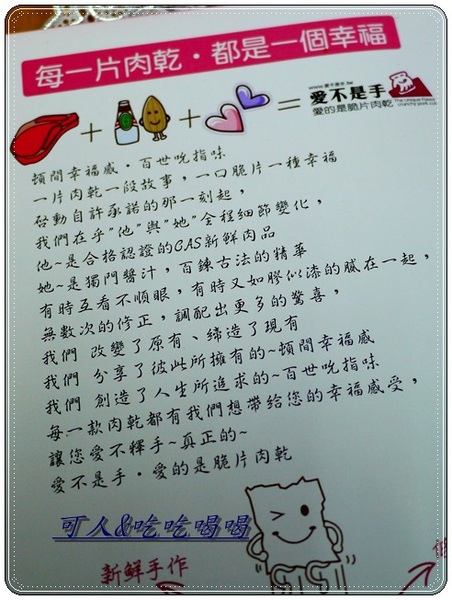 每一片肉乾・都是一個幸福
www.愛不是手.tw
愛不是手
愛的是脆片肉乾
頓間幸福感・百世吮指味
一片肉乾一段故事，一口脆片一種幸福
啓動自許承諾的那一刻起，
我們在乎"他"與"她"全程細節變化，
他~是合格認證的CAS新鮮肉品
她~是獨門醬汁，百鍊古法的精華
有時互看不順眼，有時又如膠似漆的膩在一起，
無數次的修正，調配出更多的驚喜，
我們 改變了原有、締造了現有
我們 分享了彼此所擁有的~頓間幸福感
我們 創造了人生所追求的~百世吮指味
每一款肉乾都有我們想帶給您的幸福感受，
讓您愛不釋手~真正的~
愛不是手・愛的是脆片肉乾
可人&吃吃喝喝
新鮮手作